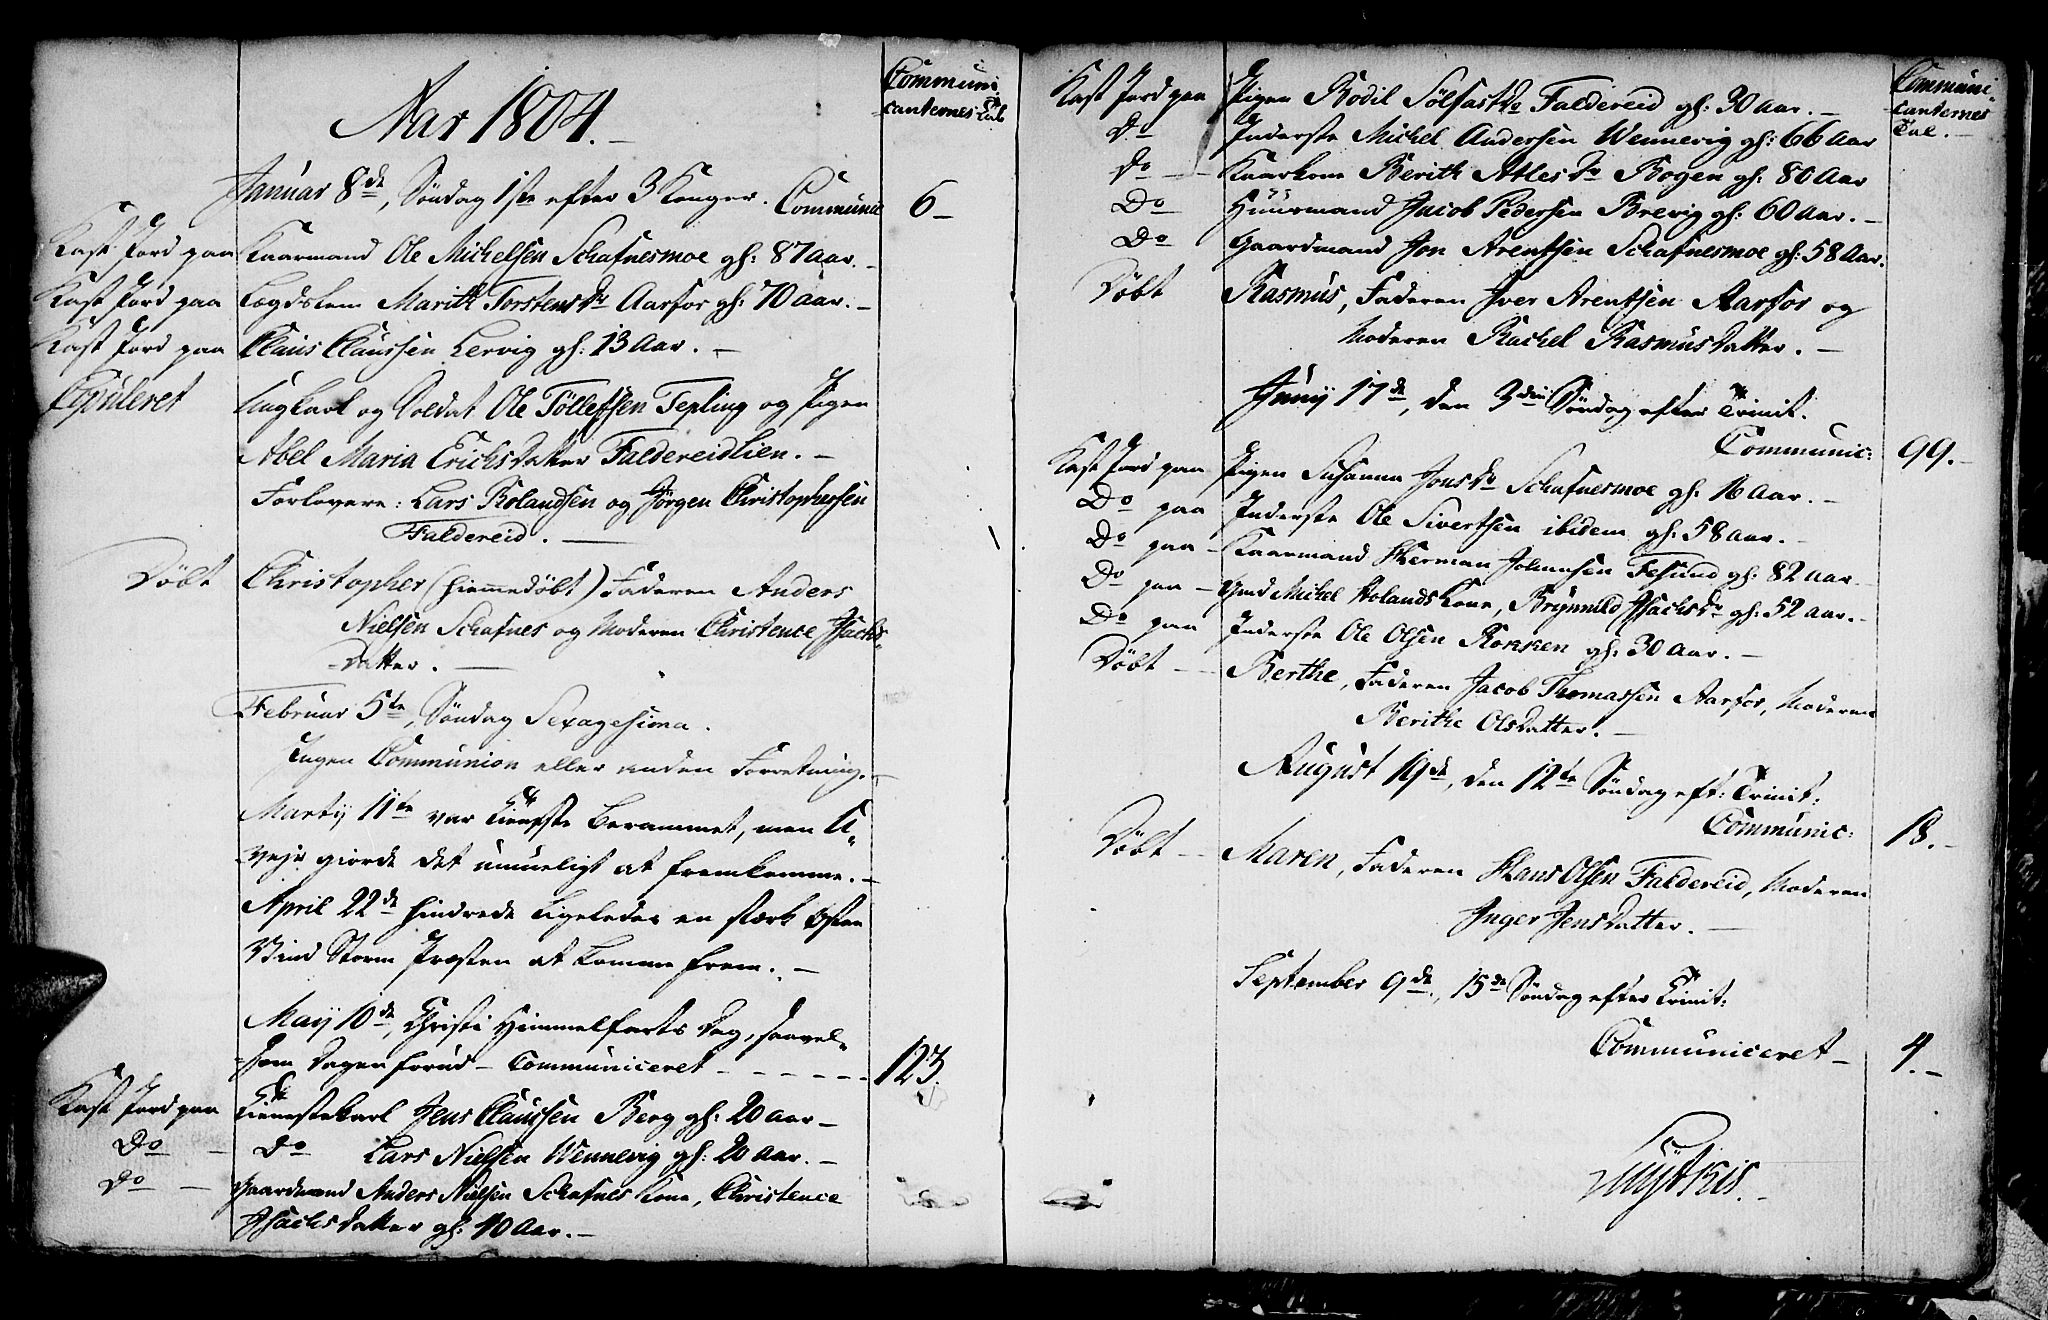 Communi
canternes Tal
Aar 1804.
Januar 8de, Söndag 1ste efter 3 Konger. Commune 6
Kast Jord paa Kaarmand Ole Michelsen Schafnesmoe gl: 87 Aar.
Kast Jord paa Lægdslem Marith Torstensdr Aarfor gl: 70 Aar.
Kast Jord paa Claus Claussen Lervig gl: 13 Aar.
Copuleret Ungkarl og Soldat Ole Töllefsen Tepling og Pigen
Abel Maria Erichsdatter Faldereidlien.
Forlovere: Lars Rolandsen og Jörgen Christophersen
Faldereid.
Döbt Christopher (hiemmedöbt) Faderen Anders
Nielsen Schafnes og Moderen Christence Jsachs
Datter.
Februar 5te, Söndag Sexagesima.
Jngen Communion eller anden Forretning.
Martij 11te var Tieneste berammet, men U-
vejr giorde det umueligt at fremkomme.
April 22de hindrede ligeledes en stærk Østen
Vind Storm Præsten at komme frem.
Maij 10de, Christi Himmelfarts Dag, saavel-
som Dagen forud - Communiceret 123.
Kast Jord paa Tienestekarl Jens Claussen Berg gl: 20 Aar
Do Do Lars Nielsen Wennevig gl: 20 Aar.
Do Gaardmand Anders Nielsen Schafnes Kone, Christence
Jsachsdatter gl: 40 Aar.
Communi
canternes
Tal.
Kast Jord paa Pigen Bodil Sölfastdr Faldereid gl: 30 Aar.
Do Jnderste Michel Andersen Wennevig gl: 66 Aar
Do Kaarkone Berith Atlesdr Bogen gl: 80 Aar
Do Huusmand Jacob Pedersen Brevig gl: 60 Aar.
Do Gaardmand Jon Arentsen Schafnesmoe gl: 58 Aar.
Döbt Rasmus, Faderen Jver Arentsen Aarfor og
Moderen Rachel Rasmusdatter.
Junij 17de, den 3die Söndag efter Trinit.
Communic: 99.
Kast Jord paa Pigen Susanna Jonsdr Schafnesmoe gl: 16 Aar.
Do paa Jnderste Ole Sivertsen ibidem gl: 58 Aar.
Do paa Kaarmand Herman Johansen Fesund gl: 82 Aar
Do paa Gmd Michel Holands Kone, Brynnild Jsachsdr gl: 52 Aar.
Do paa Jnderste Ole Olsen Rokken gl: 30 Aar.
Döbt Berthe, Faderen Jacob Thomassen Aarfor, Moderen
Berithe Olsdatter.
August 19de, den 12te Söndag eft: Trinit:
Communic: 18.
Döbt Maren, Faderen Hans Olsen Faldereid, Moderen
Jnger Jensdatter.
September 9de, 15de Söndag efter Trinit:
Communiceret 4.